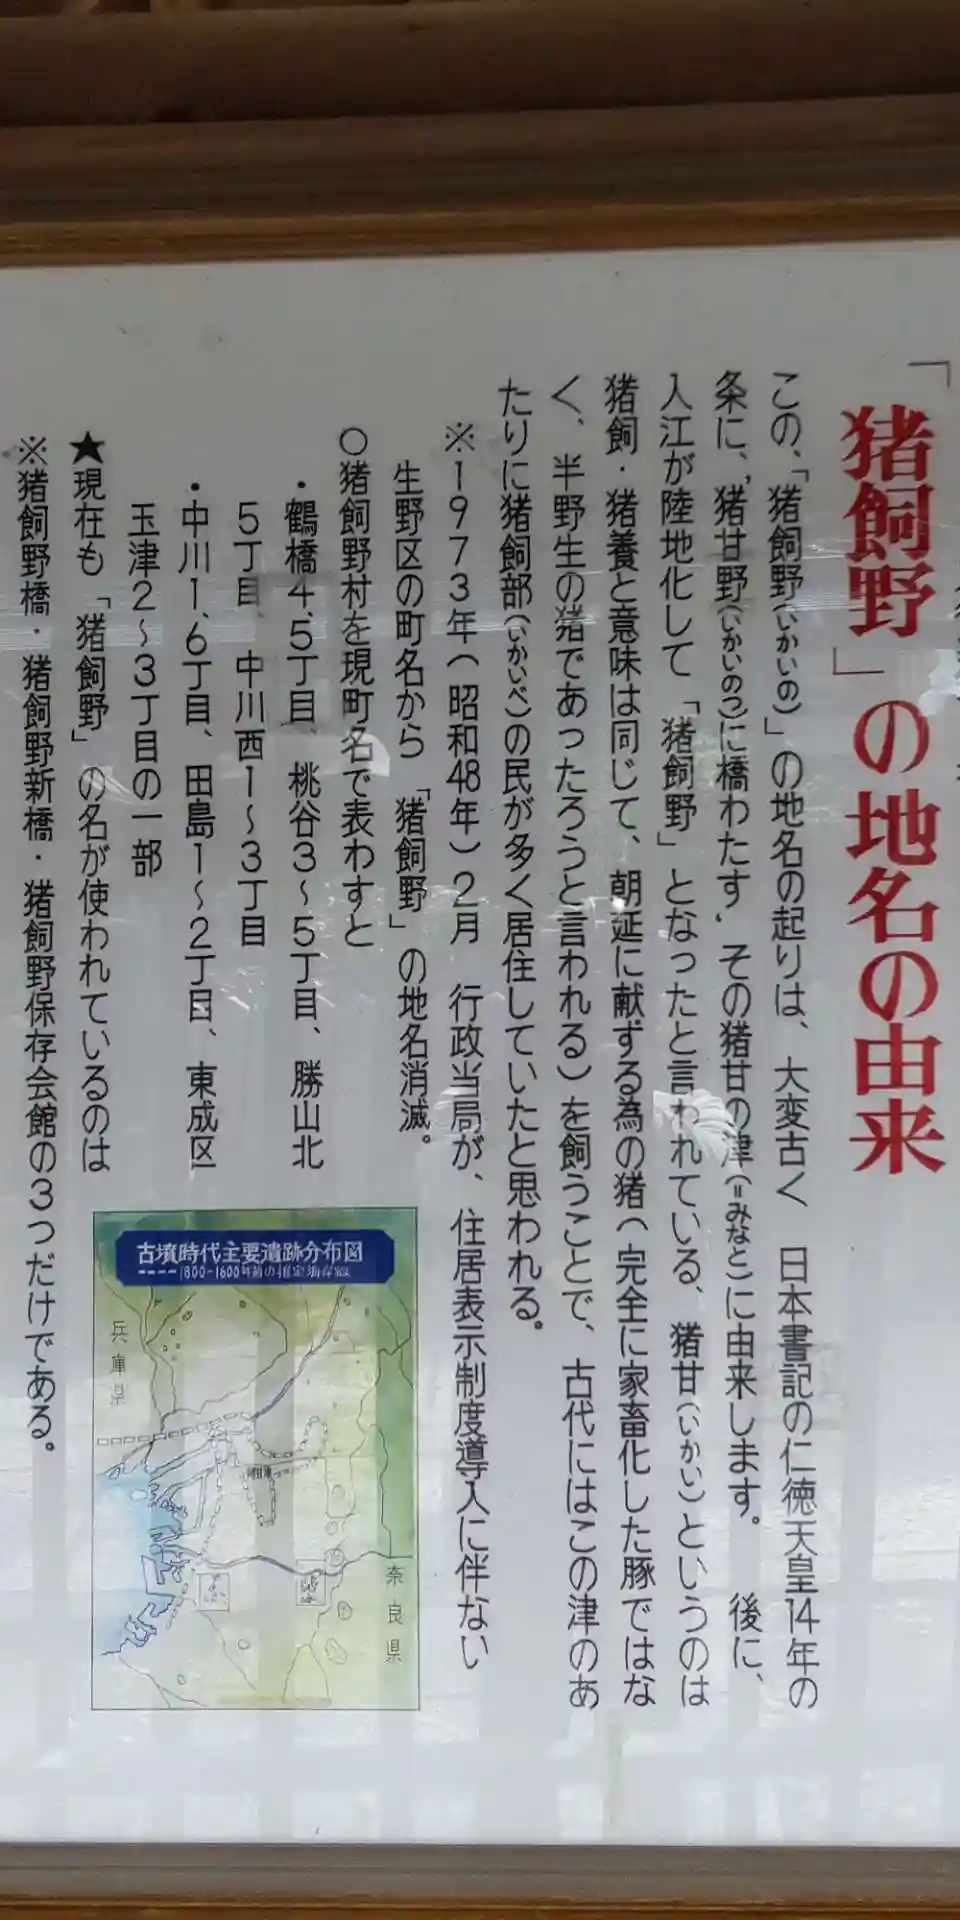 「猪飼野」の地名の由来
この、「猪飼野(いかいの)」の地名の起りは、大変古く 日本書記の仁徳天皇14年の
条に、"猪甘野(いかいの?)に橋わたす"その猪甘の津(=みなと)に由来します。 後に、
入江が陸地化して「猪飼野」となったと言われている、猪甘(いかい)というのは
猪飼・猪養と意味は同じて、朝延に献ずる為の猪(完全に家畜化した豚ではな
く、半野生の猪であったろうと言われる)を飼うことで、古代にはこの津のあ
たりに猪飼部(いかいべ)の民が多く居住していたと思われる。
※1973年(昭和48年)2月 行政当局が、住居表示制度導入に伴ない
生野区の町名から「猪飼野」の地名消滅。
○猪飼野村を現町名で表わすと
・鶴橋4、5丁目、桃谷3〜5丁目、勝山北
5丁目、中川西1〜3丁目
・中川1、6丁目、田島1〜2丁目、東成区
玉津2〜3丁目の一部
★現在も「猪飼野」の名が使われているのは
※猪飼野橋・猪飼野新橋・猪飼野保存会館の3つだけである。
古墳時代主要遺跡分布図
1800-1600年前の推定海岸線
兵庫県
奈良県